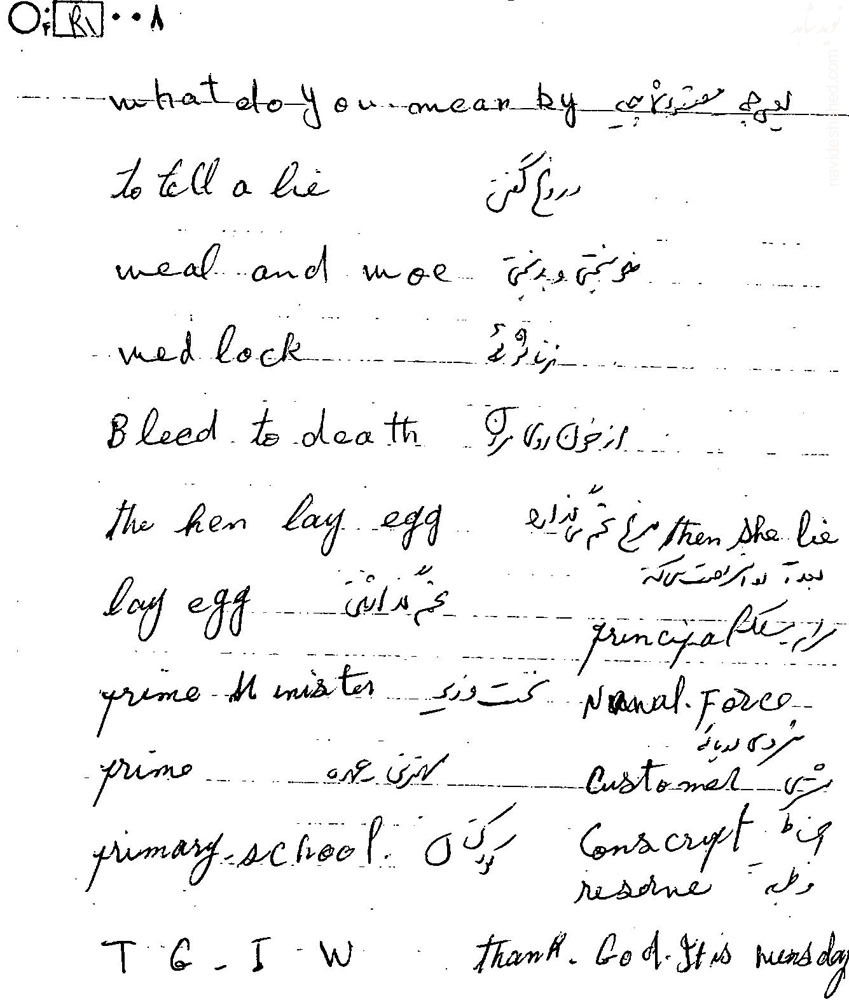 R۱ ۰۰۸
what do you mean by یعنی چه
to tell a lie دروغ گفتن
weal and woe خوشبختی و بدبختی
wed lock زناشوئی
Bleed to death از خون روی مردن
the hen lay egg مرغ تخم می گذارد then she lie
lay egg تخم گذاشتن
principal
prime Minister نخست وزیر
Naval. Force
نیروی دریائی
prime
Customer مشتری
primary-school. کودکی
Conscript
reserve
T G - I W thank. God. It is